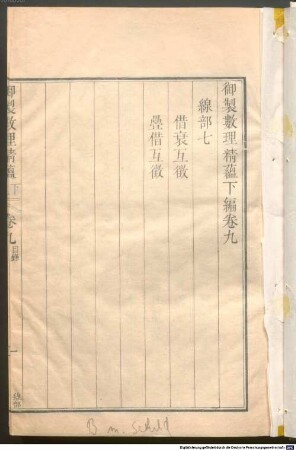 御製數理精蘊下編卷九
線部七
借衰互徵
疊借互徵
御製數理精蘊下編
卷九
目錄
一
Digitalisierung gefördert durch die Deutsche Forschungsgemeinschaft